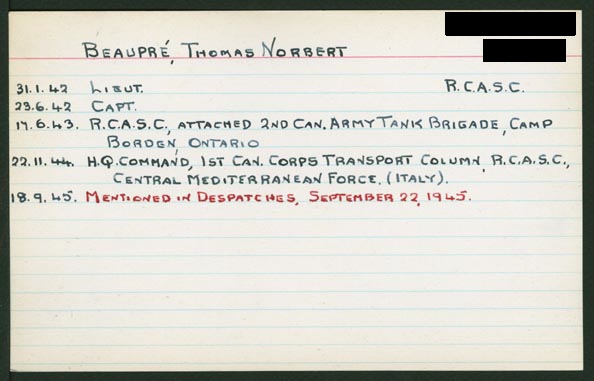 BEAUPRÉ, THOMAS NORBERT
31.1.42 LIEUT. R.C.A.S.C.
23.6.42 CAPT.
17.6.43. R.C.A.S.C., ATTACHED 2ND CAN. ARMY TANK BRIGADE, CAMP
BORDEN, ONTARIO
22.11.44. H.Q. COMMAND, 1ST CAN. CORPS TRANSPORT COLUMN, R.C.A.S.C.,
CENTRAL MEDITERRANEAN FORCE, (ITALY).
18.9.45. MENTIONED IN DESPATCHES, SEPTEMBER 22, 1945.